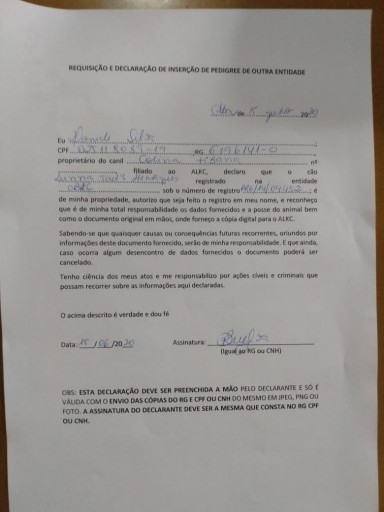 REQUISIÇÃO E DECLARAÇÃO DE INSERÇÃO DE PEDIGREE DE OUTRA ENTIDADE
20
Eu Silva
CPF RG 6196141-0
proprietário do canil Colina nº
filiado ao ALKC, declaro que o cão
registrado na entidade
sob o número de registro ; é
de minha propriedade, autorizo que seja feito o registro em meu nome, e reconheço
que é de minha total responsabilidade os dados fornecidos e a posse do animal bem
como o documento original em mãos, onde forneço a cópia digital para o ALKC.
Sabendo-se que quaisquer causas ou consequências futuras recorrentes, oriundos por
informações deste documento fornecido, serão de minha responsabilidade. E que ainda,
caso ocorra algum desencontro de dados fornecidos o documento poderá ser
cancelado.
Tenho ciência dos meus atos e me responsabilizo por ações cíveis e criminais que
possam recorrer sobre as informações aqui declaradas.
O acima descrito é verdade e dou fé
Data: 15 /06 /2020 Assinatura:
(Igual ao RG ou CNH)
OBS: ESTA DECLARAÇÃO DEVE SER PREENCHIDA A MÃO PELO DECLARANTE E SÓ É
VÁLIDA COM O ENVIO DAS CÓPIAS DO RG E CPF OU CNH DO MESMO EM JPEG, PNG OU
FOTO. A ASSINATURA DO DECLARANTE DEVE SER A MESMA QUE CONSTA NO RG CPF
OU CNH.